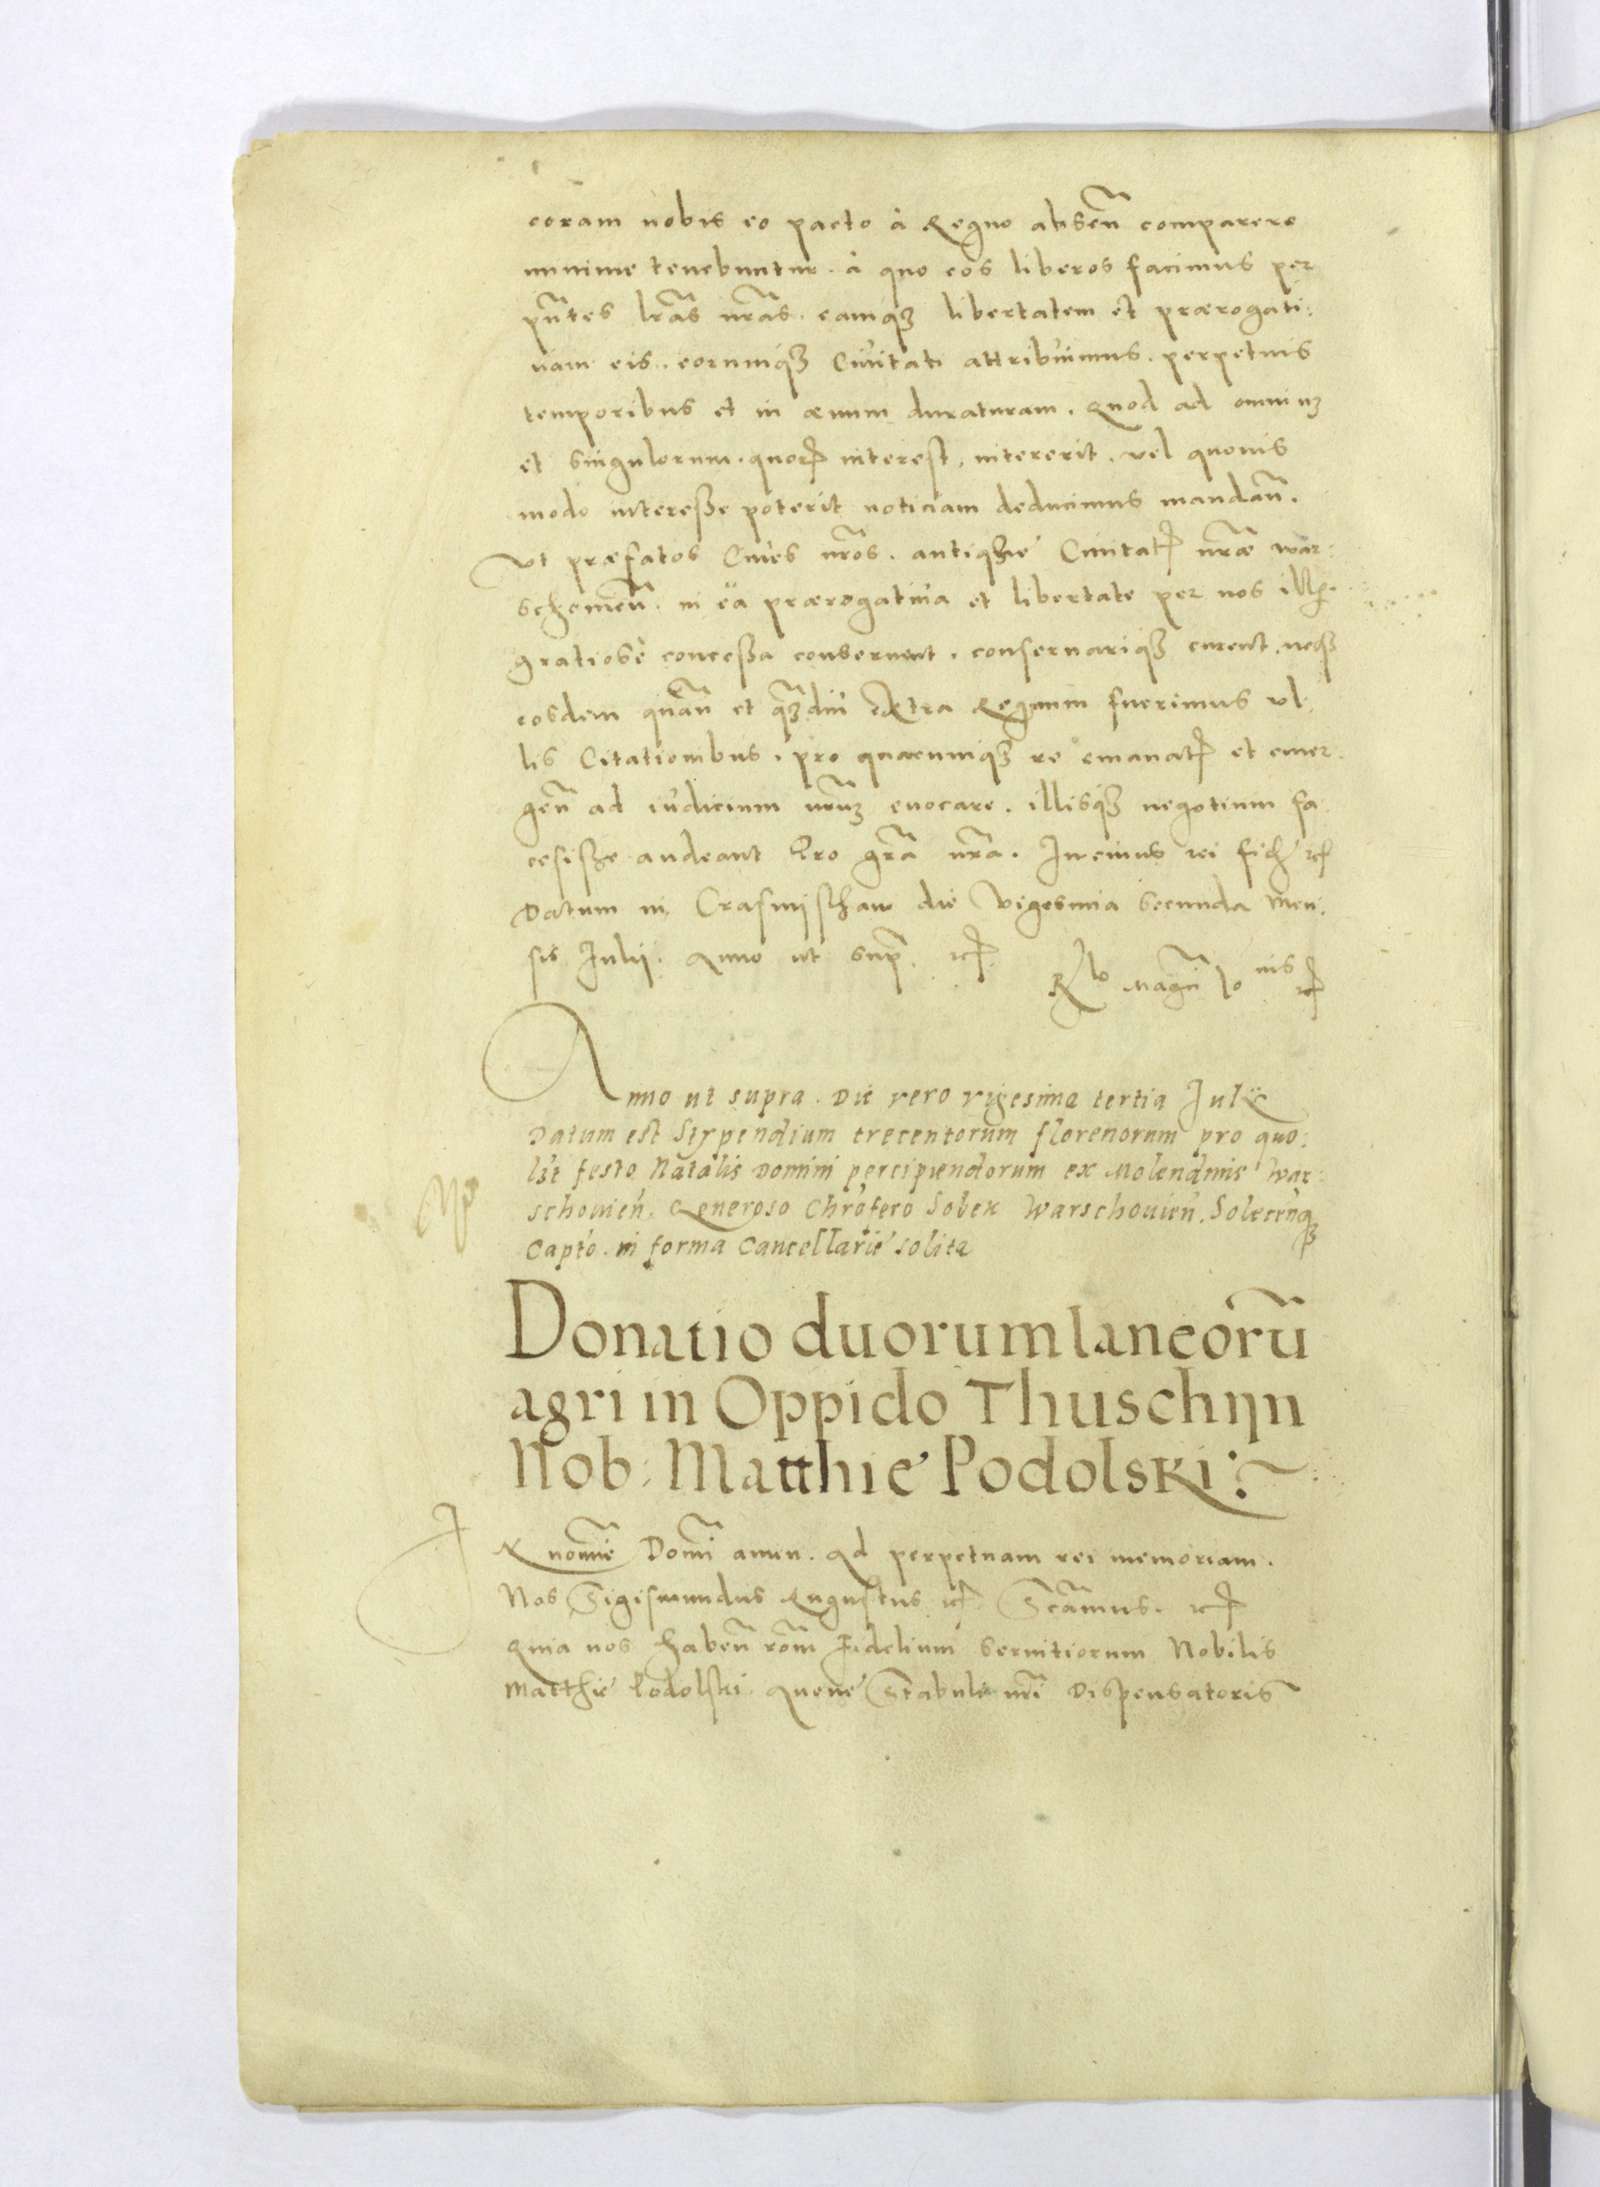 coram nobis eo pacto à Regno absen̄ comparere
minime tenebuntur. à quo eos liberos facimus per
pn̄tes lr̄as nr̄as. eamq3 libertatem et prærogati:
uam eis. eorumq3 Ciuitati attribuimus. perpetuis
temporibus et in æuum duraturam. Quod ad omniu3
et singulorum. quorꝝ interest, intererit. vel quouis
modo interesse poterit noticiam deducimus mandan̄.
Vt præfatos Ciues nr̄os. antiquæ Ciuitatꝭ nr̄æ War:
schouien̄. in ea prærogatiua et libertate per nos ill̄
gratiose concessa conseruent. conseruariq3 curent. neq3
eosdem quan̄ et q̄3diu extra Regnum fuerimus vl
lis Citationibus. pro quacumq3 re emanatꝭ et emer
gen̄ ad iudicium nr̄u3 euocare. illisq3 negotium fa
cesisse audeant Pro gr̄a nr̄a. In cuius rei fid̄ ꝛc̄
Datum in Crasnijschaw die Vigesima secunda Men:
sis Julii. Anno ut sup̄. ꝛc̄
R̄ lo Magn̄i Jo nis ꝛc̄
Anno ut supra. Die vero vigesima tertia Julij
Datum est Stypendium trecentorum florenorum pro quo:
lꝫt festo Natalis Domini percipiendorum ex Molendinis War:
schouien̄. Generoso Chrōfero Sobek Warschouien̄. Solecen̄q3
Captō. in forma Cancellarie solita
Donatio duorum laneorū
agri in Oppido Thuschijn
Nob: Matthie Podolski:~
In nomīe Domīni amen. Ad perpetuam rei memoriam.
Nos Sigismundus Augustus ꝛc̄ S̄camus. ꝛc̄
Quia nos haben̄ rōm Fidelium seruitiorum Nobilis
Matthie Podolski. Auene Stabuli nr̄i Dispensatoris